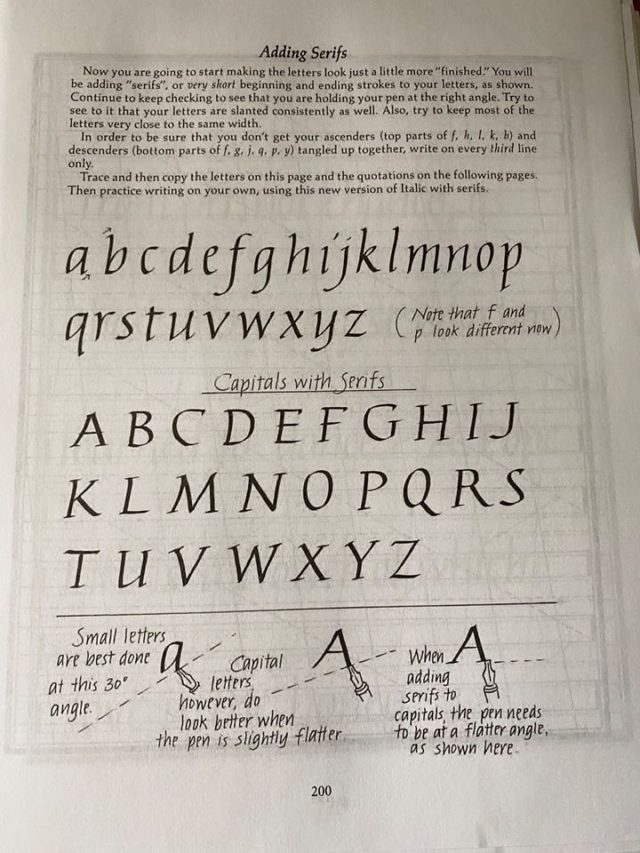 Adding Serifs
Now you are going to start making the letters look just a little more "finished." You will
be adding "serifs", or very short beginning and ending strokes to your letters, as shown.
Continue to keep checking to see that you are holding your pen at the right angle. Try to
see to it that your letters are slanted consistently as well. Also, try to keep most of the
letters very close to the same width.
In order to be sure that you don't get your ascenders (top parts of f, h, l, k, b) and
descenders (bottom parts of f, g, j, q, p, y) tangled up together, write on every third line
only.
Trace and then copy the letters on this page and the quotations on the following pages.
Then practice writing on your own, using this new version of Italic with serifs.
a b c d e f g h i j k l m n o p
q r s t u v w x y z
(Note that f and
p look different now)
Capitals with Serifs
A B C D E F G H I J
K L M N O P Q R S
T U V W X Y Z
Small letters
are best done
at this 30°
angle.
a
Capital
letters,
however, do
look better when
the pen is slightly flatter.
A
When
adding
serifs to
capitals, the pen needs
to be at a flatter angle,
as shown here.
A
200